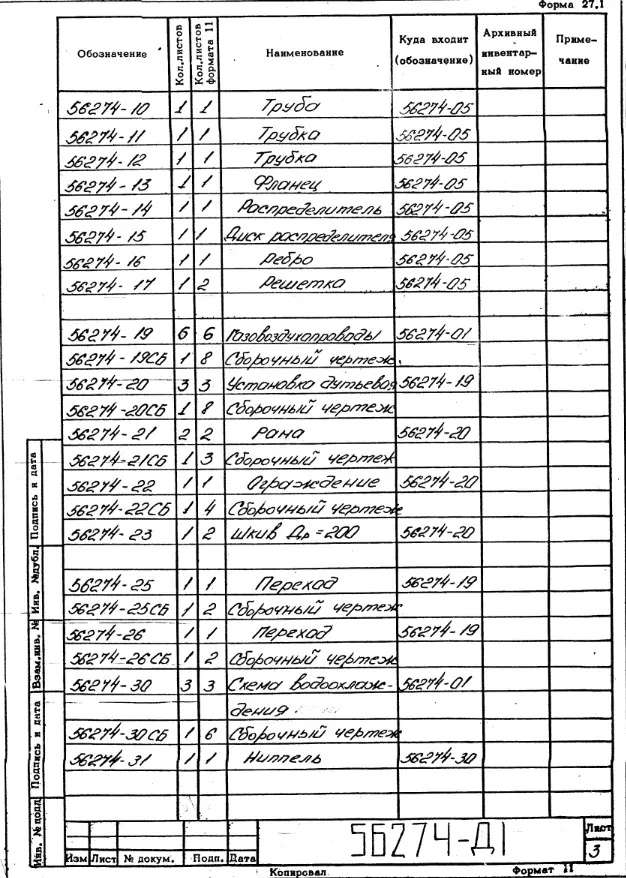 Форма 27.1
Обозначение Кол.листов Кол.листов формата 11 Наименование Куда входит (обозначение) Архивный инвентарный номер Примечание
56274-10 1 1 Труба 56274-05
56274-11 1 1 Трубка 56274-05
56274-12 1 1 Трубка 56274-05
56274-13 1 1 Фланец 56274-05
56274-14 1 1 Распределитель 56274-05
56274-15 1 1 Диск распределителя 56274-05
56274-16 1 1 Ребро 56274-05
56274-17 1 2 Решетка 56274-05
56274-19 6 6 Газовоздухопроводы 56274-01
56274-19СБ 1 8 Сборочный чертеж
56274-20 3 3 Установка дутьевая 56274-19
56274-20СБ 1 8 Сборочный чертеж
56274-21 2 2 Рама 56274-20
56274-21СБ 1 3 Сборочный чертеж
56274-22 1 1 Ограждение 56274-20
56274-22СБ 1 4 Сборочный чертеж
56274-23 1 2 Шкив Др=200 56274-20
56274-25 1 1 Переход 56274-19
56274-25СБ 1 2 Сборочный чертеж
56274-26 1 1 Переход 56274-19
56274-26СБ 1 2 Сборочный чертеж
56274-30 3 3 Схема водоохлаж- 56274-01
дения
56274-30СБ 1 6 Сборочный чертеж
56274-31 1 1 Ниппель 56274-30
Подпись и дата
Инв. №дубл.
Взам.инв. №
Подпись и дата
Инв. №подл
Изм Лист № докум. Подп. Дата
56274-Д1
Лист
3
Копировал Формат 11